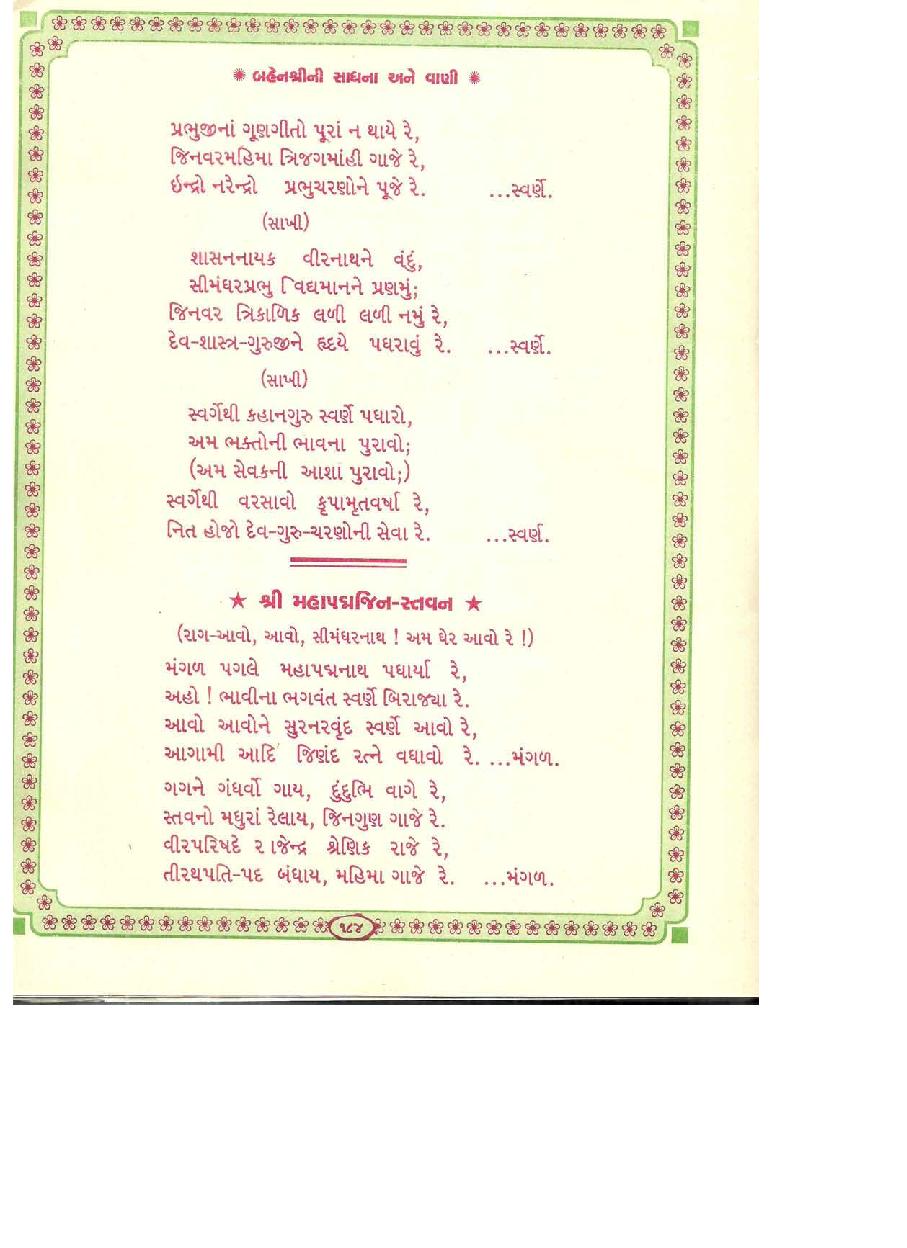 ✺ બહેનશ્રીની સાધના અને વાણી ✺
પ્રભુજીનાં ગૂણગીતો પૂરાં ન થાયે રે,
જિનવરમહિમા ત્રિજગમાંહી ગાજે રે,
ઇન્દ્રો નરેન્દ્રો પ્રભુચરણોને પૂજે રે. ...સ્વર્ણે.
(સાખી)
શાસનનાયક વીરનાથને વંદું,
સીમંધરપ્રભુ વિદ્યમાનને પ્રણમું;
જિનવર ત્રિકાળિક લળી લળી નમું રે,
દેવ-શાસ્ત્ર-ગુરુજીને હૃદયે પધરાવું રે. ...સ્વર્ણે.
(સાખી)
સ્વર્ગેથી કહાનગુરુ સ્વર્ણે પધારો,
અમ ભક્તોની ભાવના પુરાવો;
(અમ સેવકની આશા પુરાવો;)
સ્વર્ગેથી વરસાવો કૃપામૃતવર્ષા રે,
નિત હોજો દેવ-ગુરુ-ચરણોની સેવા રે. ...સ્વર્ણ.
★ શ્રી મહાપદ્મજિન-સ્તવન ★
(રાગ-આવો, આવો, સીમંધરનાથ ! અમ ઘેર આવો રે !)
મંગળ પગલે મહાપદ્મનાથ પધાર્યા રે,
અહો ! ભાવીના ભગવંત સ્વર્ણે બિરાજ્યા રે.
આવો આવોને સુરનરવૃંદ સ્વર્ણે આવો રે,
આગામી આદિ જિણંદ રત્ને વધાવો રે. ...મંગળ.
ગગને ગંધર્વો ગાય, દુંદુભિ વાગે રે,
સ્તવનો મધુરાં રેલાય, જિનગુણ ગાજે રે.
વીરપરિષદે રાજેન્દ્ર શ્રેણિક રાજે રે,
તીરથપતિ-પદ બંધાય, મહિમા ગાજે રે. ...મંગળ.
૧૮૪